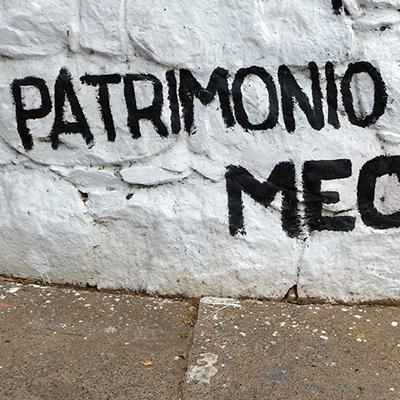 PATRIMONIO
MEC